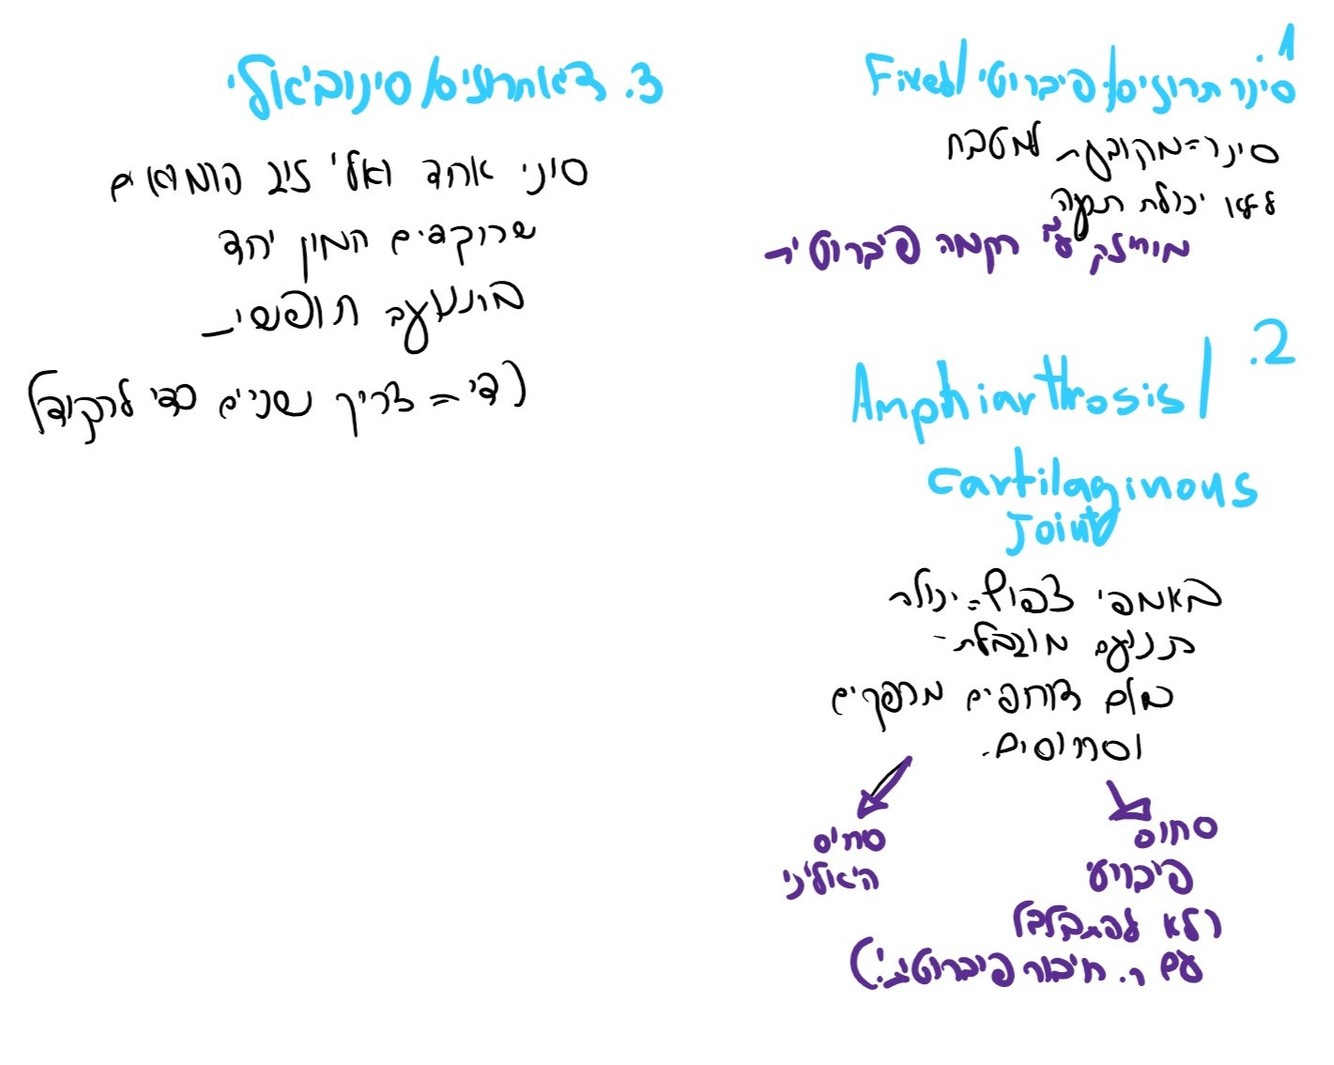 1.
סינרתרוזיס/פיברוטי/Fixed
סינר=מקובעת למטבח
ללא יכולת תנועה
מוחזק ע"י רקמה פיברוטית
2.
Amphiarthrosis/
Cartilaginous
Joint
באמפי צפוף=יכולת
תנועה מוגבלת-
כולם דוחפים מרפקים
וסחוסים.
סחוס
פיברוטי
(לא להתבלבל
עם ר. חיבור פיברוטית!)
סחוס
היאליני
3. דיארתרוזיס/סינוביאלי
סיני אחד ואלי זיב הומואים
שרוקדים המון יחד
בתנועה חופשית
(די=צריך שניים כדי לרקוד)